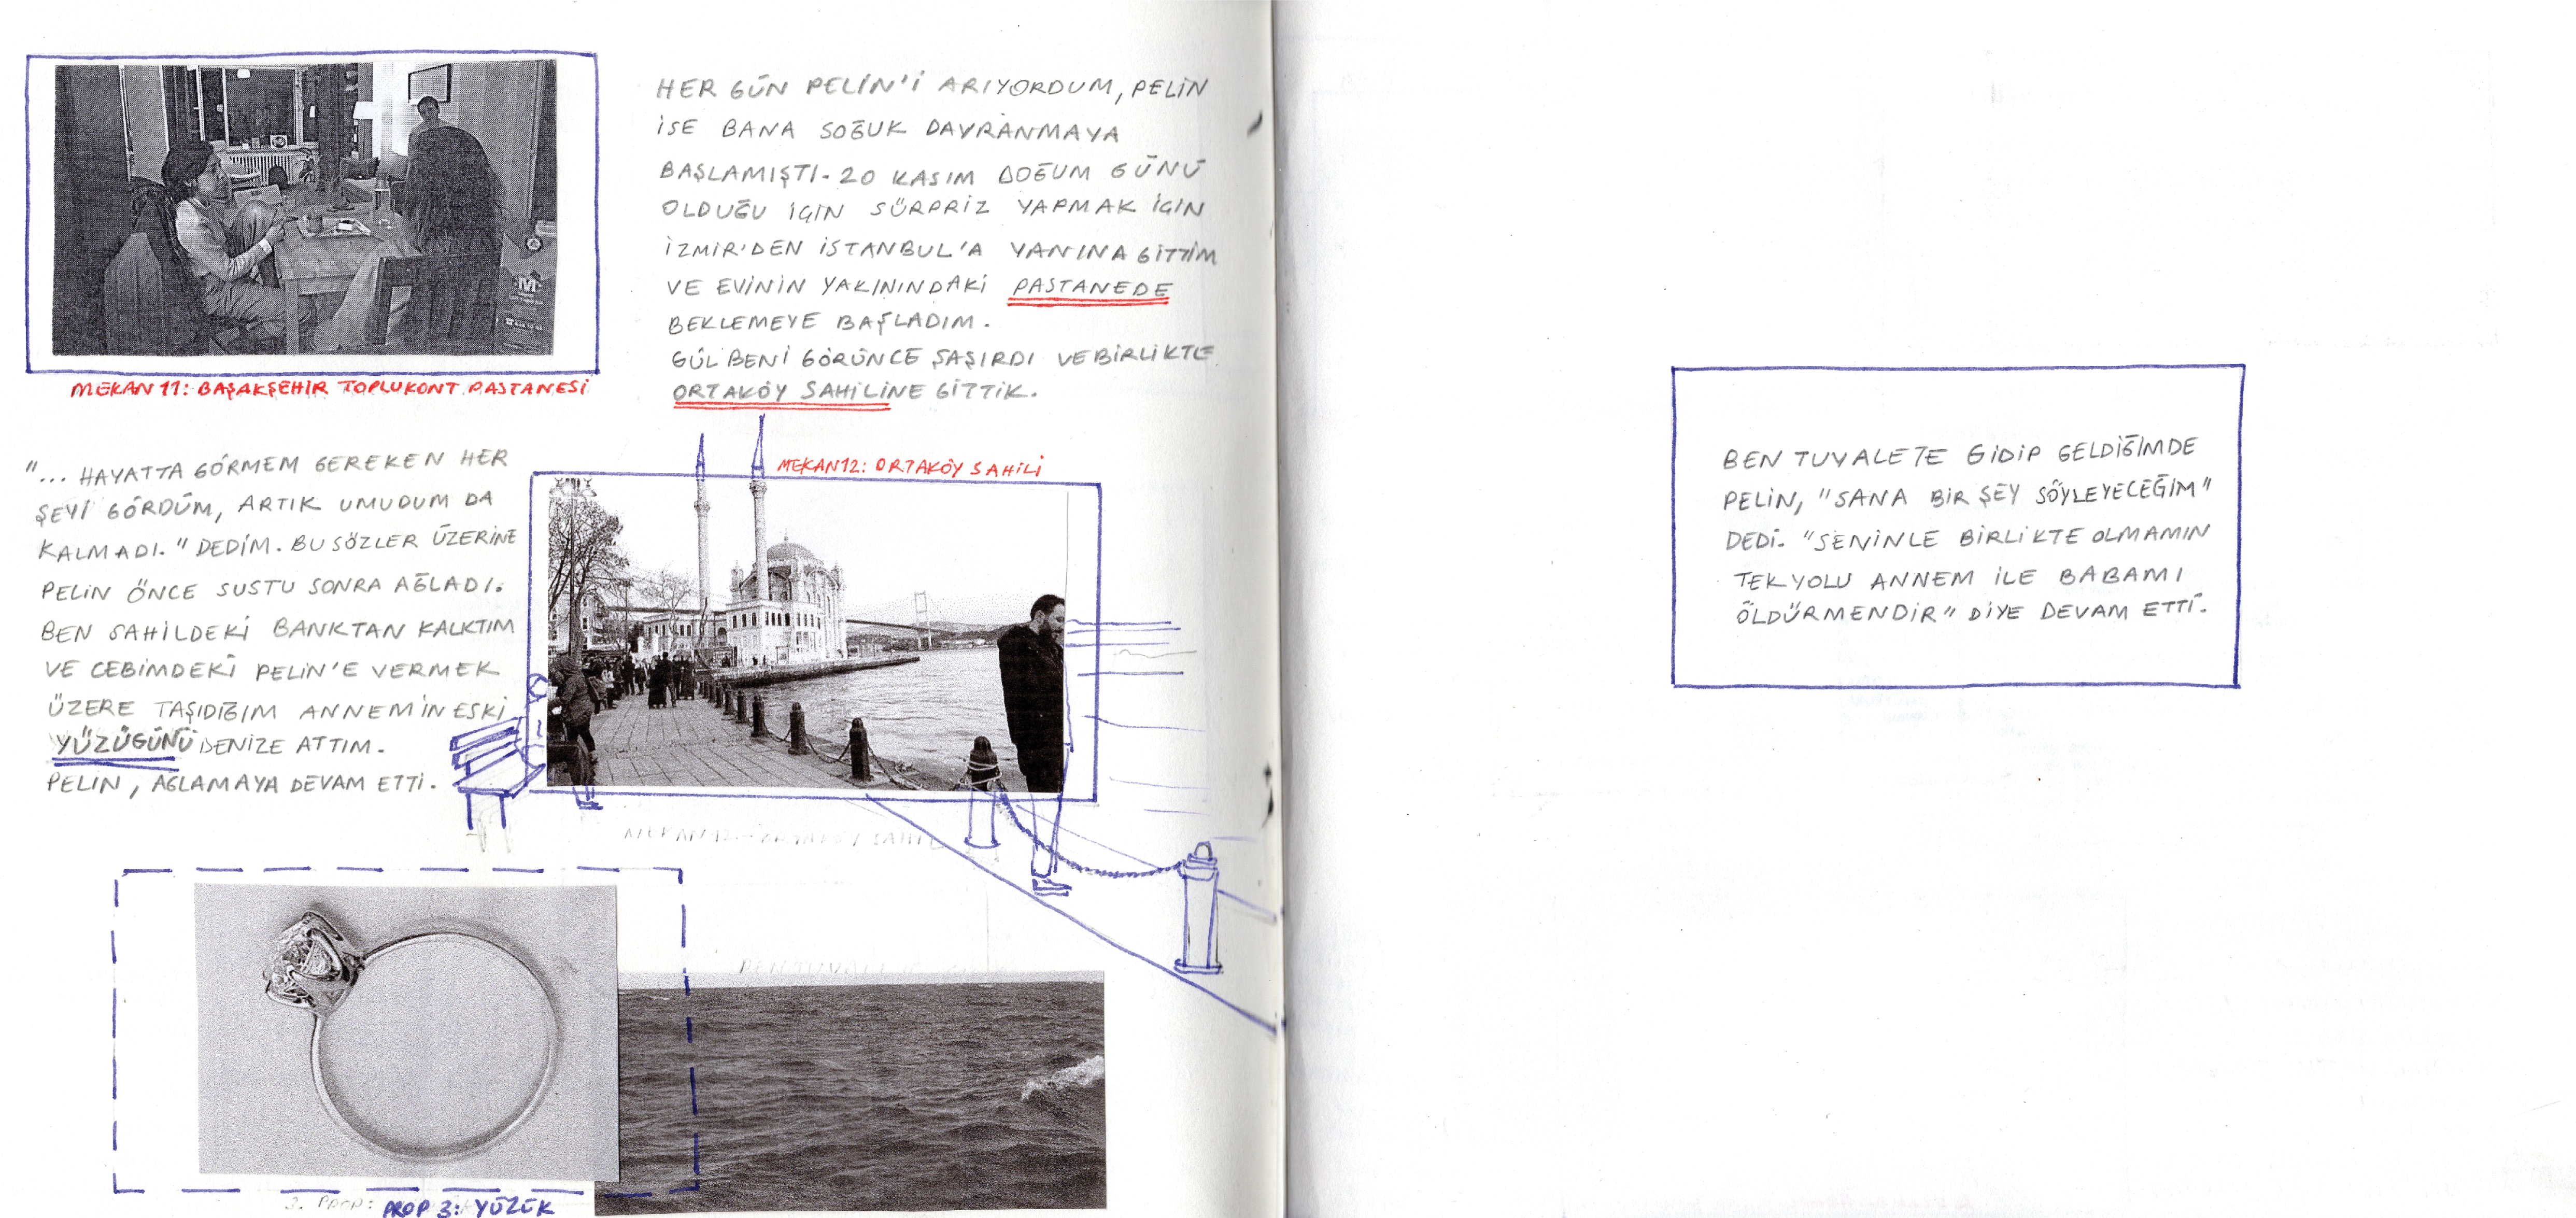 HER GÜN PELİN'İ ARIYORDUM, PELİN
İSE BANA SOĞUK DAVRANMAYA
BAŞLAMIŞTI. 20 KASIM DOĞUM GÜNÜ
OLDUĞU İÇİN SÜRPRİZ YAPMAK İÇİN
İZMİR'DEN İSTANBUL'A YANINA GİTTİM
VE EVİNİN YAKININDAKİ PASTANEDE
BEKLEMEYE BAŞLADIM.
GÜL BENİ GÖRÜNCE ŞAŞIRDI VE BİRLİKTE
ORTAKÖY SAHİLİNE GİTTİK.
M
MEKAN 11: BAŞAKŞEHİR TOPLUKONT PASTANESİ
"... HAYATTA GÖRMEM GEREKEN HER
ŞEYİ GÖRDÜM, ARTIK UMUDUM DA
KALMADI." DEDİM. BU SÖZLER ÜZERİNE
PELİN ÖNCE SUSTU SONRA AĞLADI.
BEN SAHİLDEKİ BANKTAN KALKTIM
VE CEBİMDEKİ PELİN'E VERMEK
ÜZERE TAŞIDIĞIM ANNEMİN ESKİ
YÜZÜĞÜNÜ DENİZE ATTIM.
PELİN, AĞLAMAYA DEVAM ETTİ.
MEKAN 12: ORTAKÖY SAHİLİ
MEKAN 12: ORTAKÖY SAHİL
BEN TUVALE
3. PROP:
PROP 3: YÜZÜK
BEN TUVALETE GİDİP GELDİĞİMDE
PELİN, "SANA BİR ŞEY SÖYLEYECEĞİM"
DEDİ. "SENİNLE BİRLİKTE OLMAMIN
TEK YOLU ANNEM İLE BABAMI
ÖLDÜRMENDİR" DİYE DEVAM ETTİ.